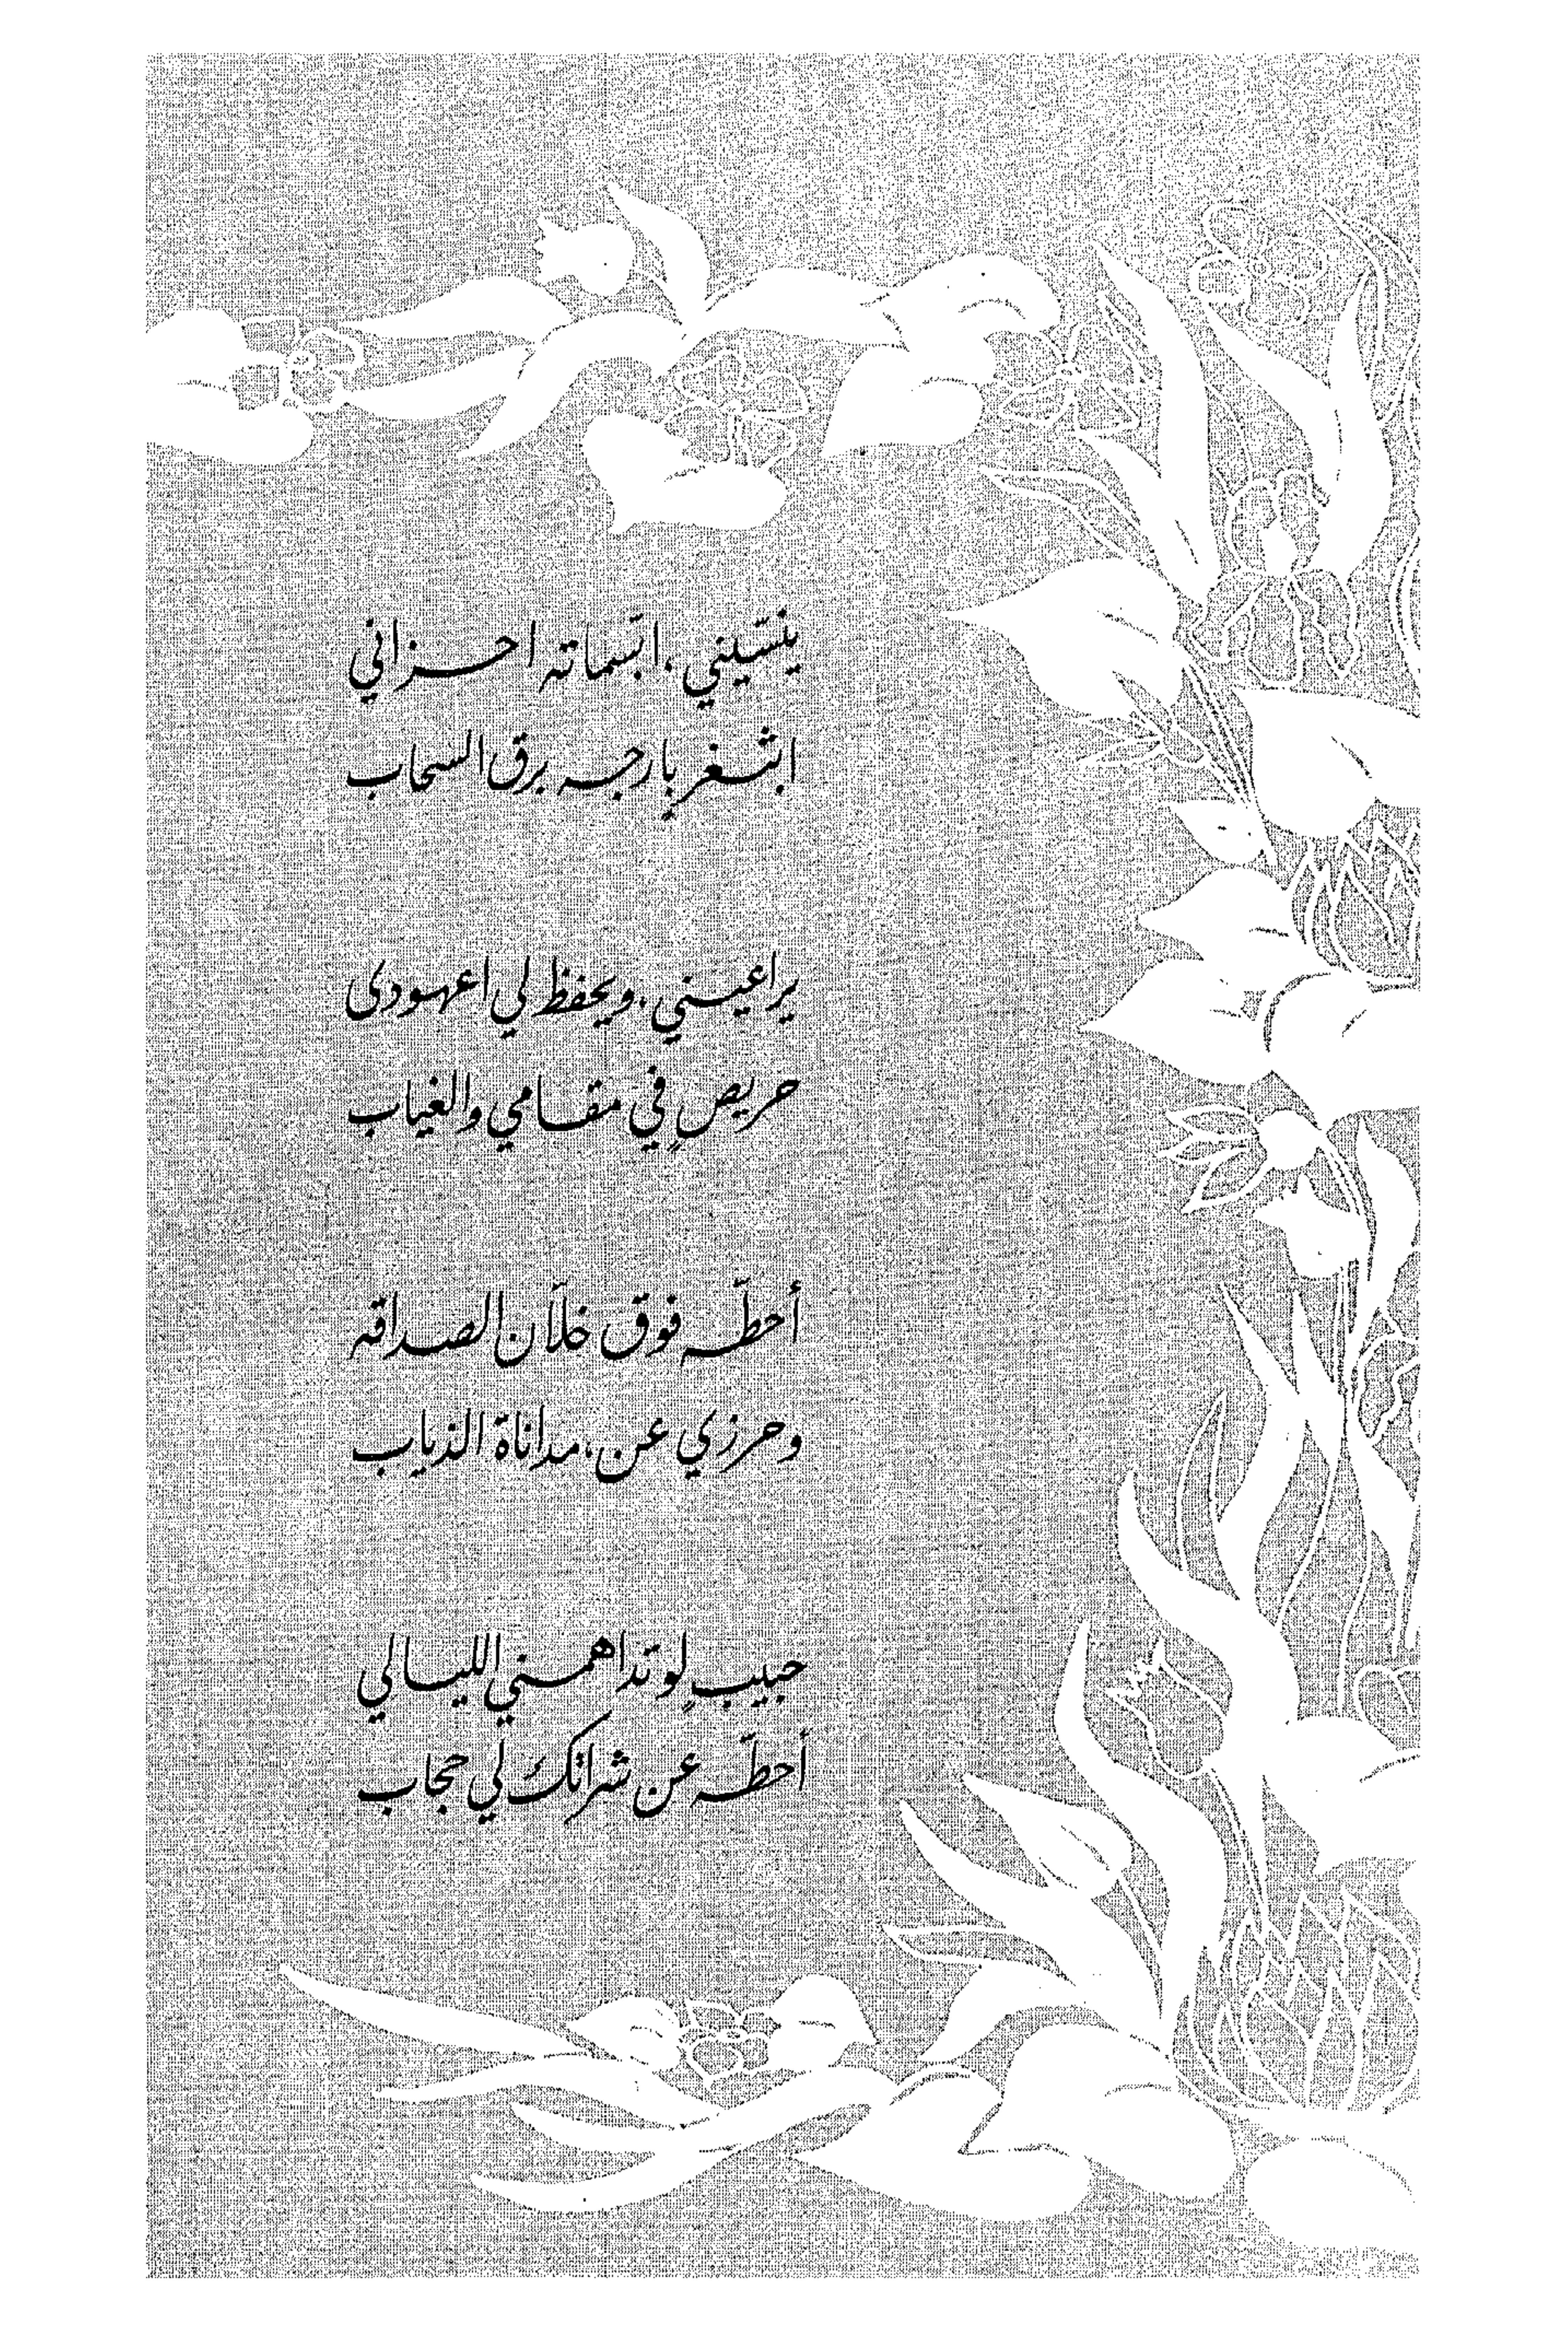 ينسّيني ، ابتسماته احزاني
ابثغرٍ بارجه برق السحاب
يراعيني . ويحفظ لي اعهودى
حريصٍ في مقامي والغياب
أحطّه فوق خلاّن الصداقه
وحرزي عن . مداناة الذياب
حبيبٍ لو تداهمني الليالي
أحطّه عن شراتك لي حجاب